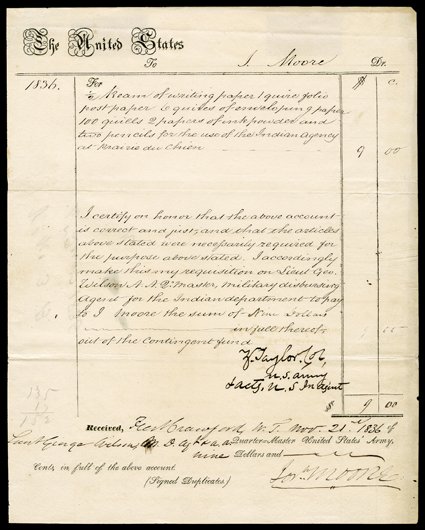 The United States
To J. Moore Dr.
1836. For $ C
½ Ream of writing paper 1 quire folio
post paper 6 quires of enveloping paper
100 quills 2 papers of ink powder and
two pencils for the use of the Indian Agency
at Prairie du Chien 9 00
I certify on honor that the above account
is correct and just; and that the articles
above stated were necessarily required for
the purpose above stated. I accordingly
make this my requisition on Lieut Geo.
Wilson A. A. Qr. Master, military disbursing
Agent for the Indian department to pay
to J Moore the sum of Nine Dollars
in full thereof
out of the Contingent fund
Z. Taylor, Col,
U.S. army
& acting U. S In Agent
$ 9 00
Received, Fort Crawford, W. T. Nov. 21st 1836 of
Lieut George Wilson, Quarter-Master United States' Army,
nine Dollars and
Cents, in full of the above account.
(Signed Duplicates) Moore